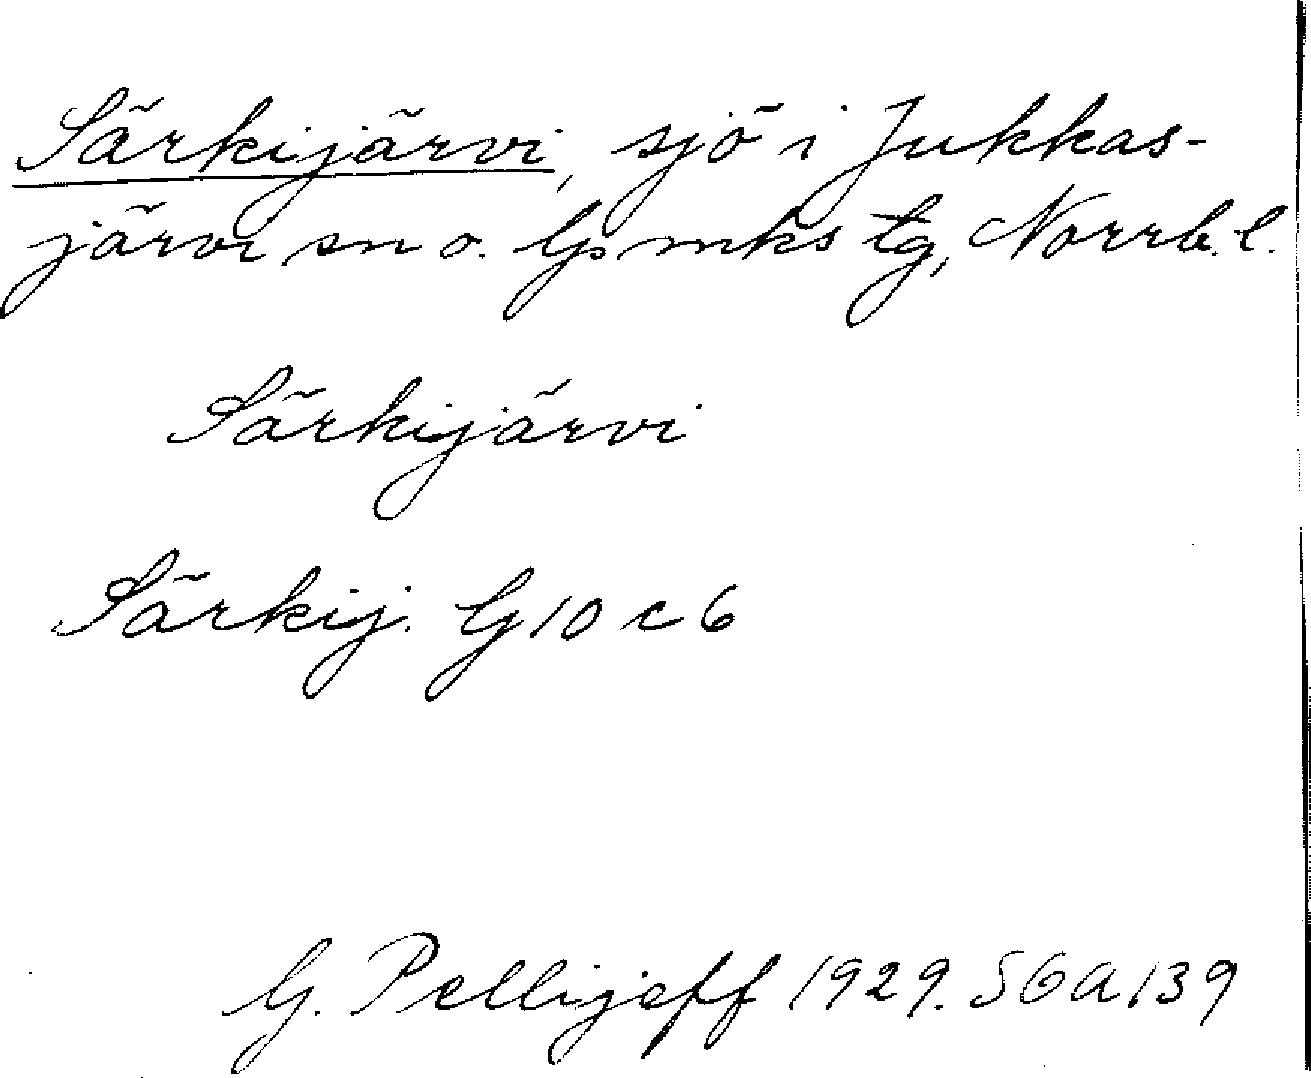 Särkijärvi, sjö i Jukkas-
järvi sn o. lpmks tg, Norrb. l.
Särkijärvi
Särkij. G 10 c 6
G. Pellijeff 1929. SGA 139